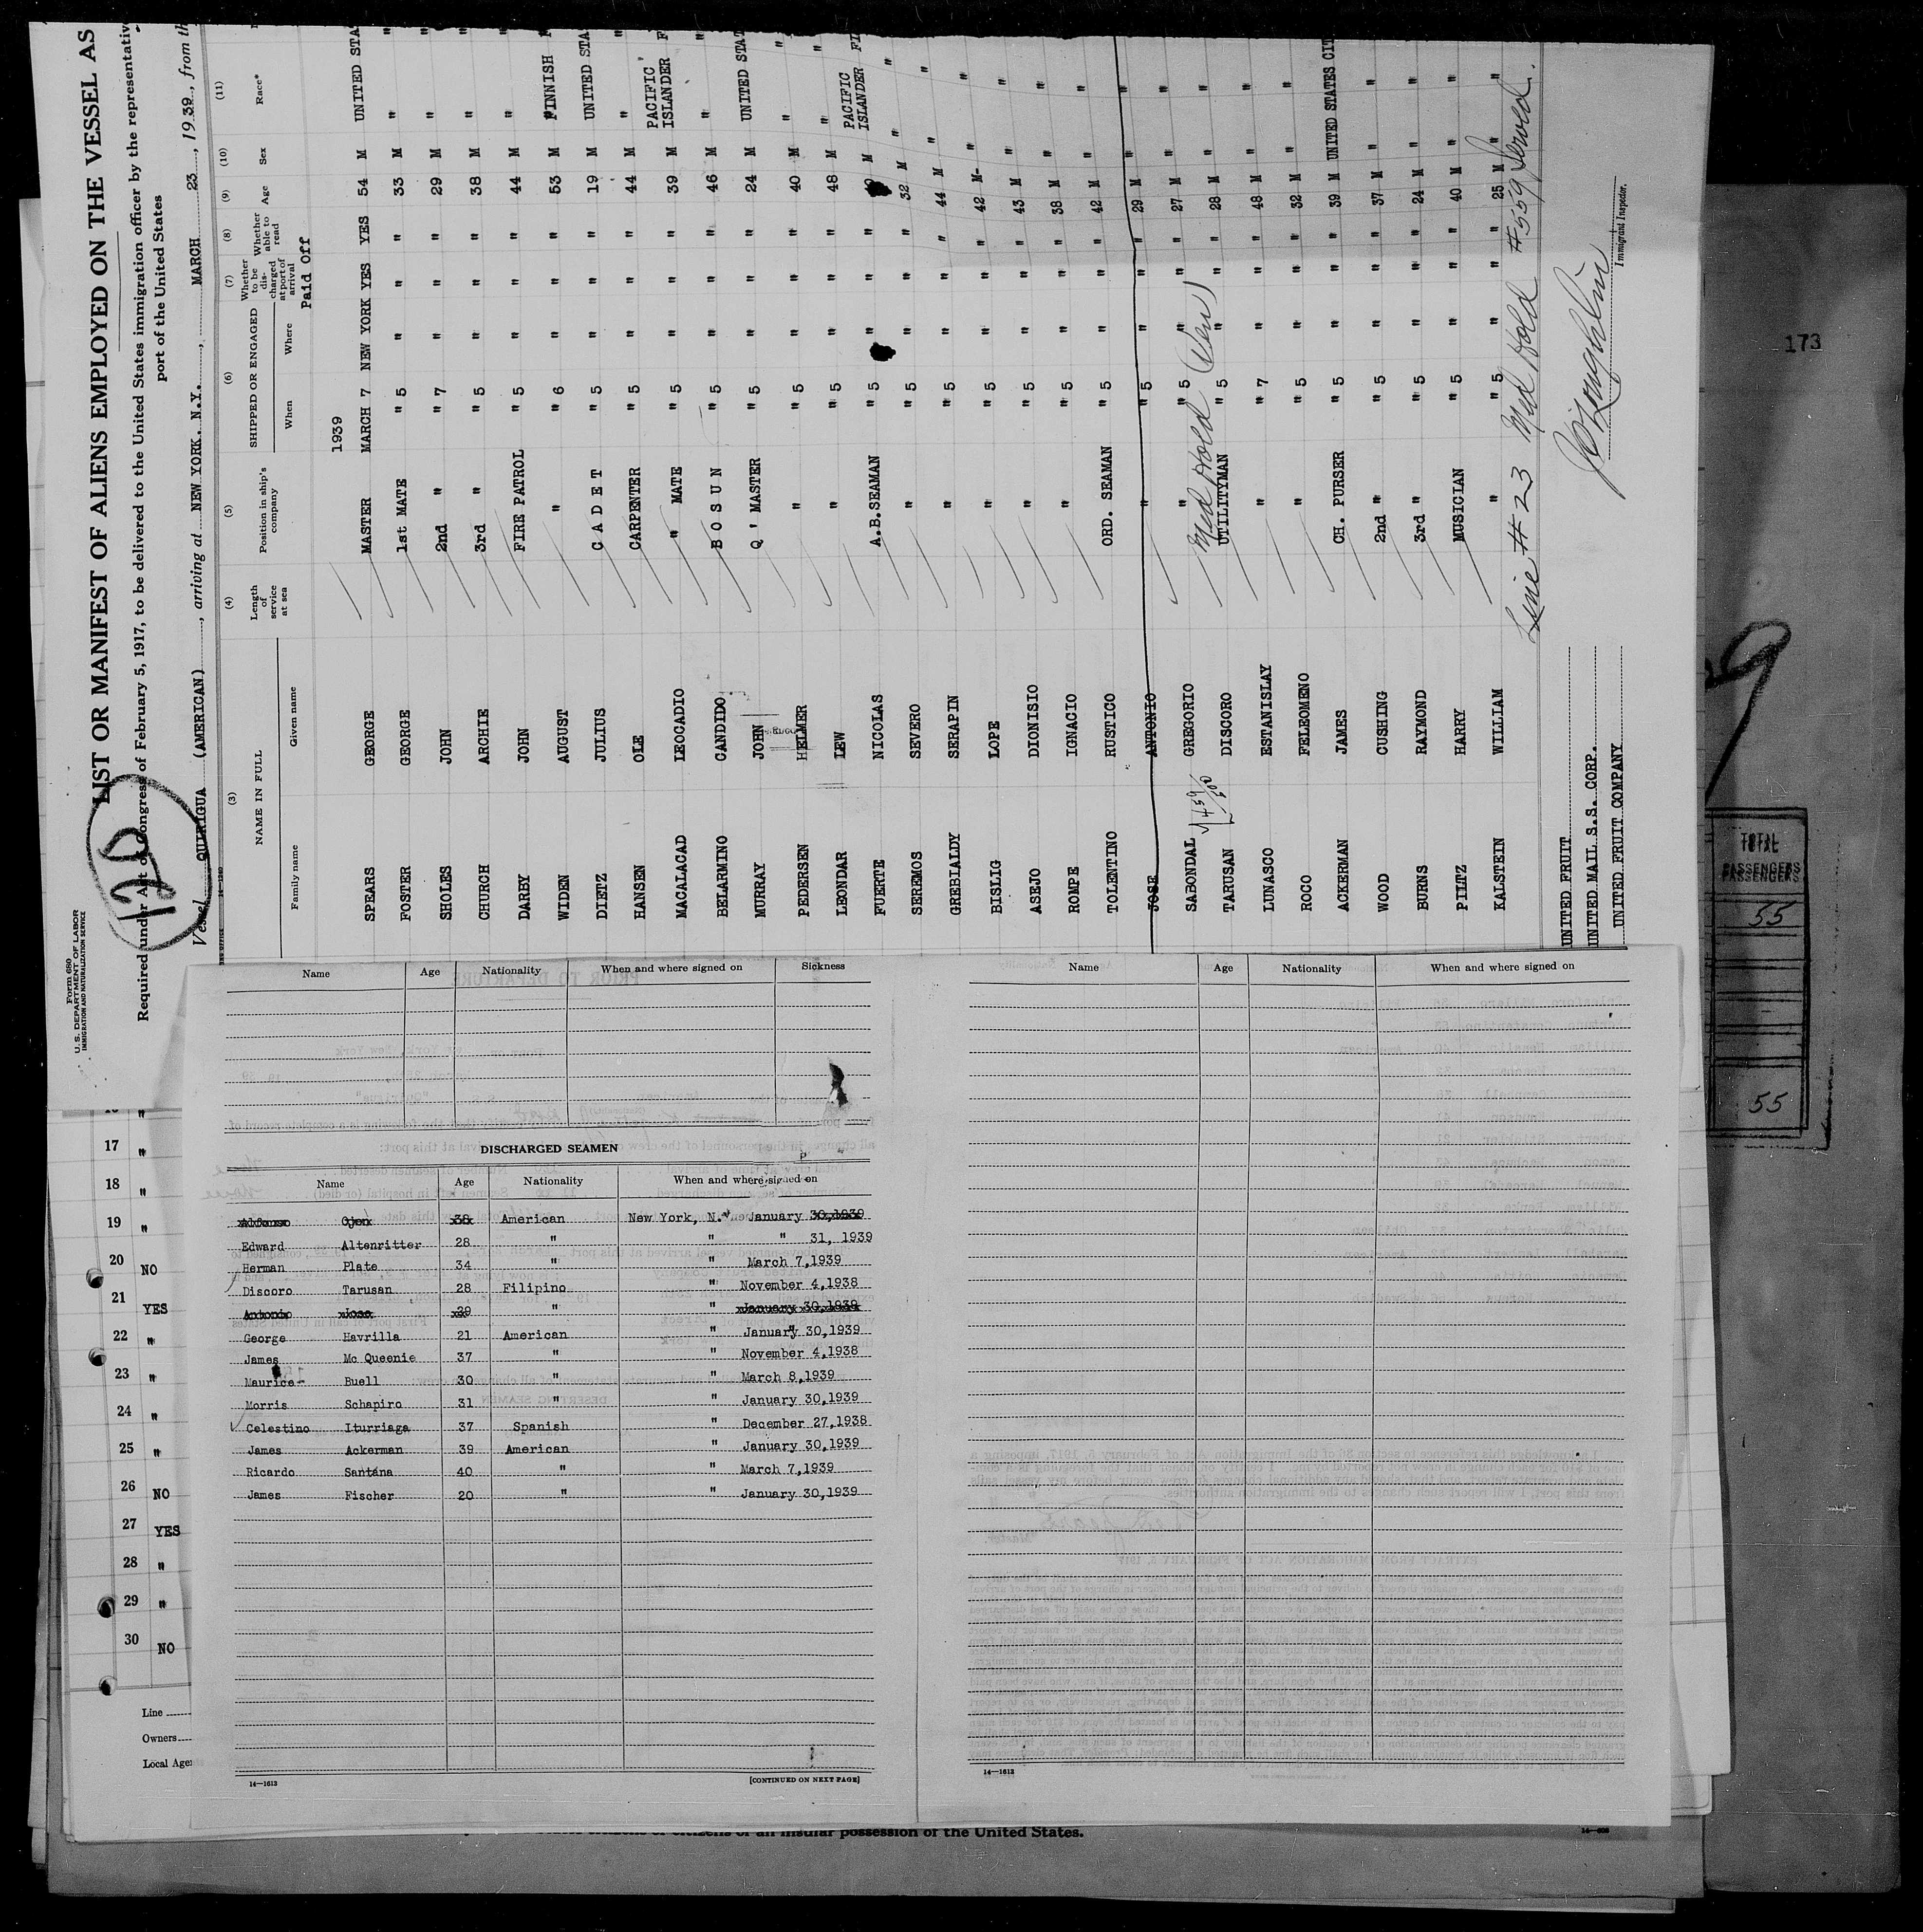 Form 680
U. S. DEPARTMENT OF LABOR
IMMIGRATION AND NATURALIZATION SERVICE
120
LIST OR MANIFEST OF ALIENS EMPLOYED ON THE VESSEL AS
Required under Act of Congress of February 5, 1917, to be delivered to the United States immigration officer by the representative
port of the United States
Vessel QUIRIGUA (AMERICAN), arriving at NEW YORK. N.Y., MARCH 23, 1939, from th
(3) (4) (5) (6) (7) (8) (9) (10) (11)
NAME IN FULL Length of service at sea Position in ship's company SHIPPED OR ENGAGED Whether to be discharged at port of arrival Whether able to read Age Sex Race*
Family name Given name When Where
Paid Off
1939
SPEARS GEORGE MASTER MARCH 7 NEW YORK YES YES 54 M UNITED STA
FOSTER GEORGE 1st MATE " 5 " " " 33 M "
SHOLES JOHN 2nd " " 7 " " " 29 M "
CHURCH ARCHIE 3rd " " 5 " " " 38 M "
DARBY JOHN FIRE PATROL " 5 " " " 44 M "
WIDEN AUGUST " " 6 " " " 53 M FINNISH
DIETZ JULIUS C A D E T " 5 " " " 19 M UNITED STA
HANSEN OLE CARPENTER " 5 " " " 44 M "
MACALACAD LEOCADIO " MATE " 5 " " " 39 M PACIFIC ISLANDER
BELARMINO CANDIDO B O S U N " 5 " " " 46 M "
MURRAY JOHN Q ' MASTER " 5 " " " 24 M UNITED STAT
PEDERSEN HELMER " " 5 " " " 40 M "
LEONDAR LEW " " 5 " " " 48 M "
FUERTE NICOLAS A.B.SEAMAN " 5 " " " M PACIFIC ISLANDER FI
SEREMOS SEVERO " " 5 " " " 32 M "
GREBIALDY SERAPIN " " 5 " " " 44 M "
BISLIG LOPE " " 5 " " " 42 M "
ASEJO DIONISIO " " 5 " " " 43 M "
ROMPE IGNACIO " " 5 " " " 38 M "
TOLENTINO RUSTICO ORD. SEAMAN " 5 " " " 42 M "
JOSE ANTONIO " " 5 " " " 29 M "
SABONDAL GREGORIO " " 5 " " " 27 M "
Med Hold (Ven)
TARUSAN DISCORO UTILITYMAN " 5 " " " 28 M "
LUNASCO ESTANISLAY " " 7 " " " 48 M "
ROCO FELEOMENO " " 5 " " " 32 M "
ACKERMAN JAMES CH. PURSER " 5 " " " 39 M UNITED STATES CIT
WOOD CUSHING 2nd " " 5 " " " 37 M "
BURNS RAYMOND 3rd " " 5 " " " 24 M "
PILTZ HARRY MUSICIAN " 5 " " " 40 M "
KALSTEIN WILLIAM " " 5 " " " 25 M "
Line #23 Med Hold #559 Served.
UNITED FRUIT
UNITED MAIL S.S. CORP.
UNITED FRUIT COMPANY
Immigrant Inspector.
173
9
TOTAL
PASSENGERS
55
55
17 "
18 "
19 "
20 NO
21 YES
22 "
23 "
24 "
25 "
26 NO
27 YES
28 "
29 "
30 NO
Line
Owners
Local Agen
Name Age Nationality When and where signed on Sickness
DISCHARGED SEAMEN
Name Age Nationality When and where signed on
38 American New York, N.Y January 30,1939
Edward Altenritter 28 " " " 31, 1939
Herman Plate 34 " " March 7,1939
Discoro Tarusan 28 Filipino " November 4,1938
Antonio Jose 29 " " January 30,1939
George Havrilla 21 American " January 30,1939
James Mc Queenie 37 " " November 4,1938
Maurice Buell 30 " " March 8,1939
Morris Schapiro 31 " " January 30,1939
Celestino Iturriaga 37 Spanish " December 27,1938
James Ackerman 39 American " January 30,1939
Ricardo Santana 40 " " March 7,1939
James Fischer 20 " " January 30,1939
14—1613 [CONTINUED ON NEXT PAGE]
Name Age Nationality When and where signed on
14—1613
of an insular possession of the United States.